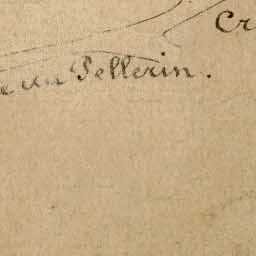 Cr
du Pellerin.